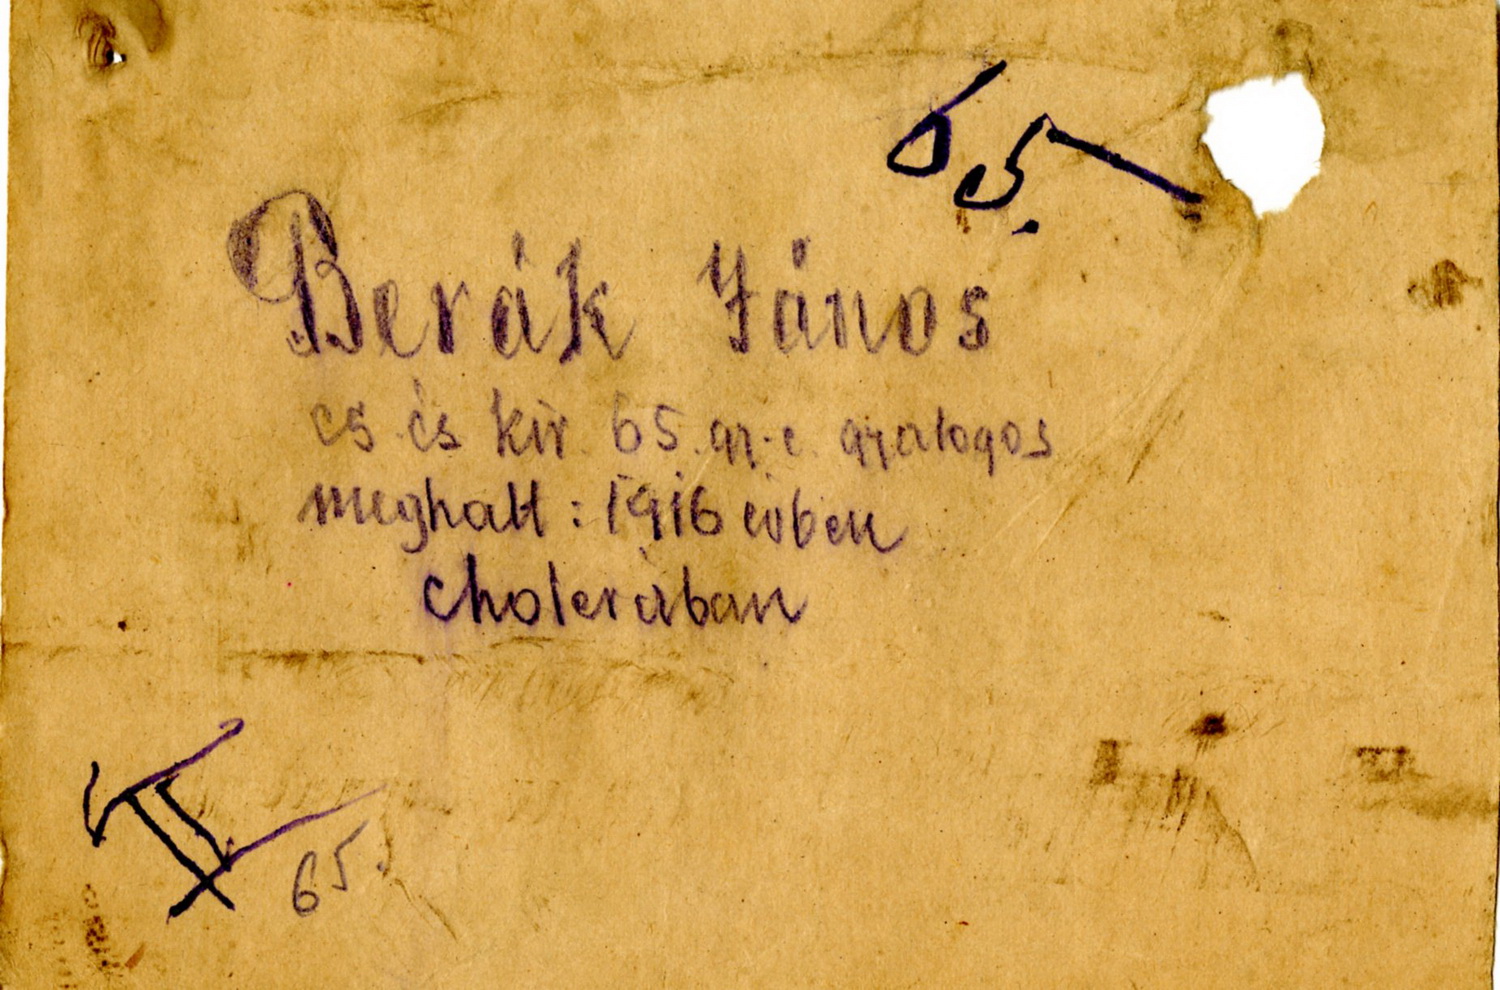 65.
Berák János
cs. és kir. 65. gy. e. gyalogos
meghalt: 1916 évben
cholerában
II
65.